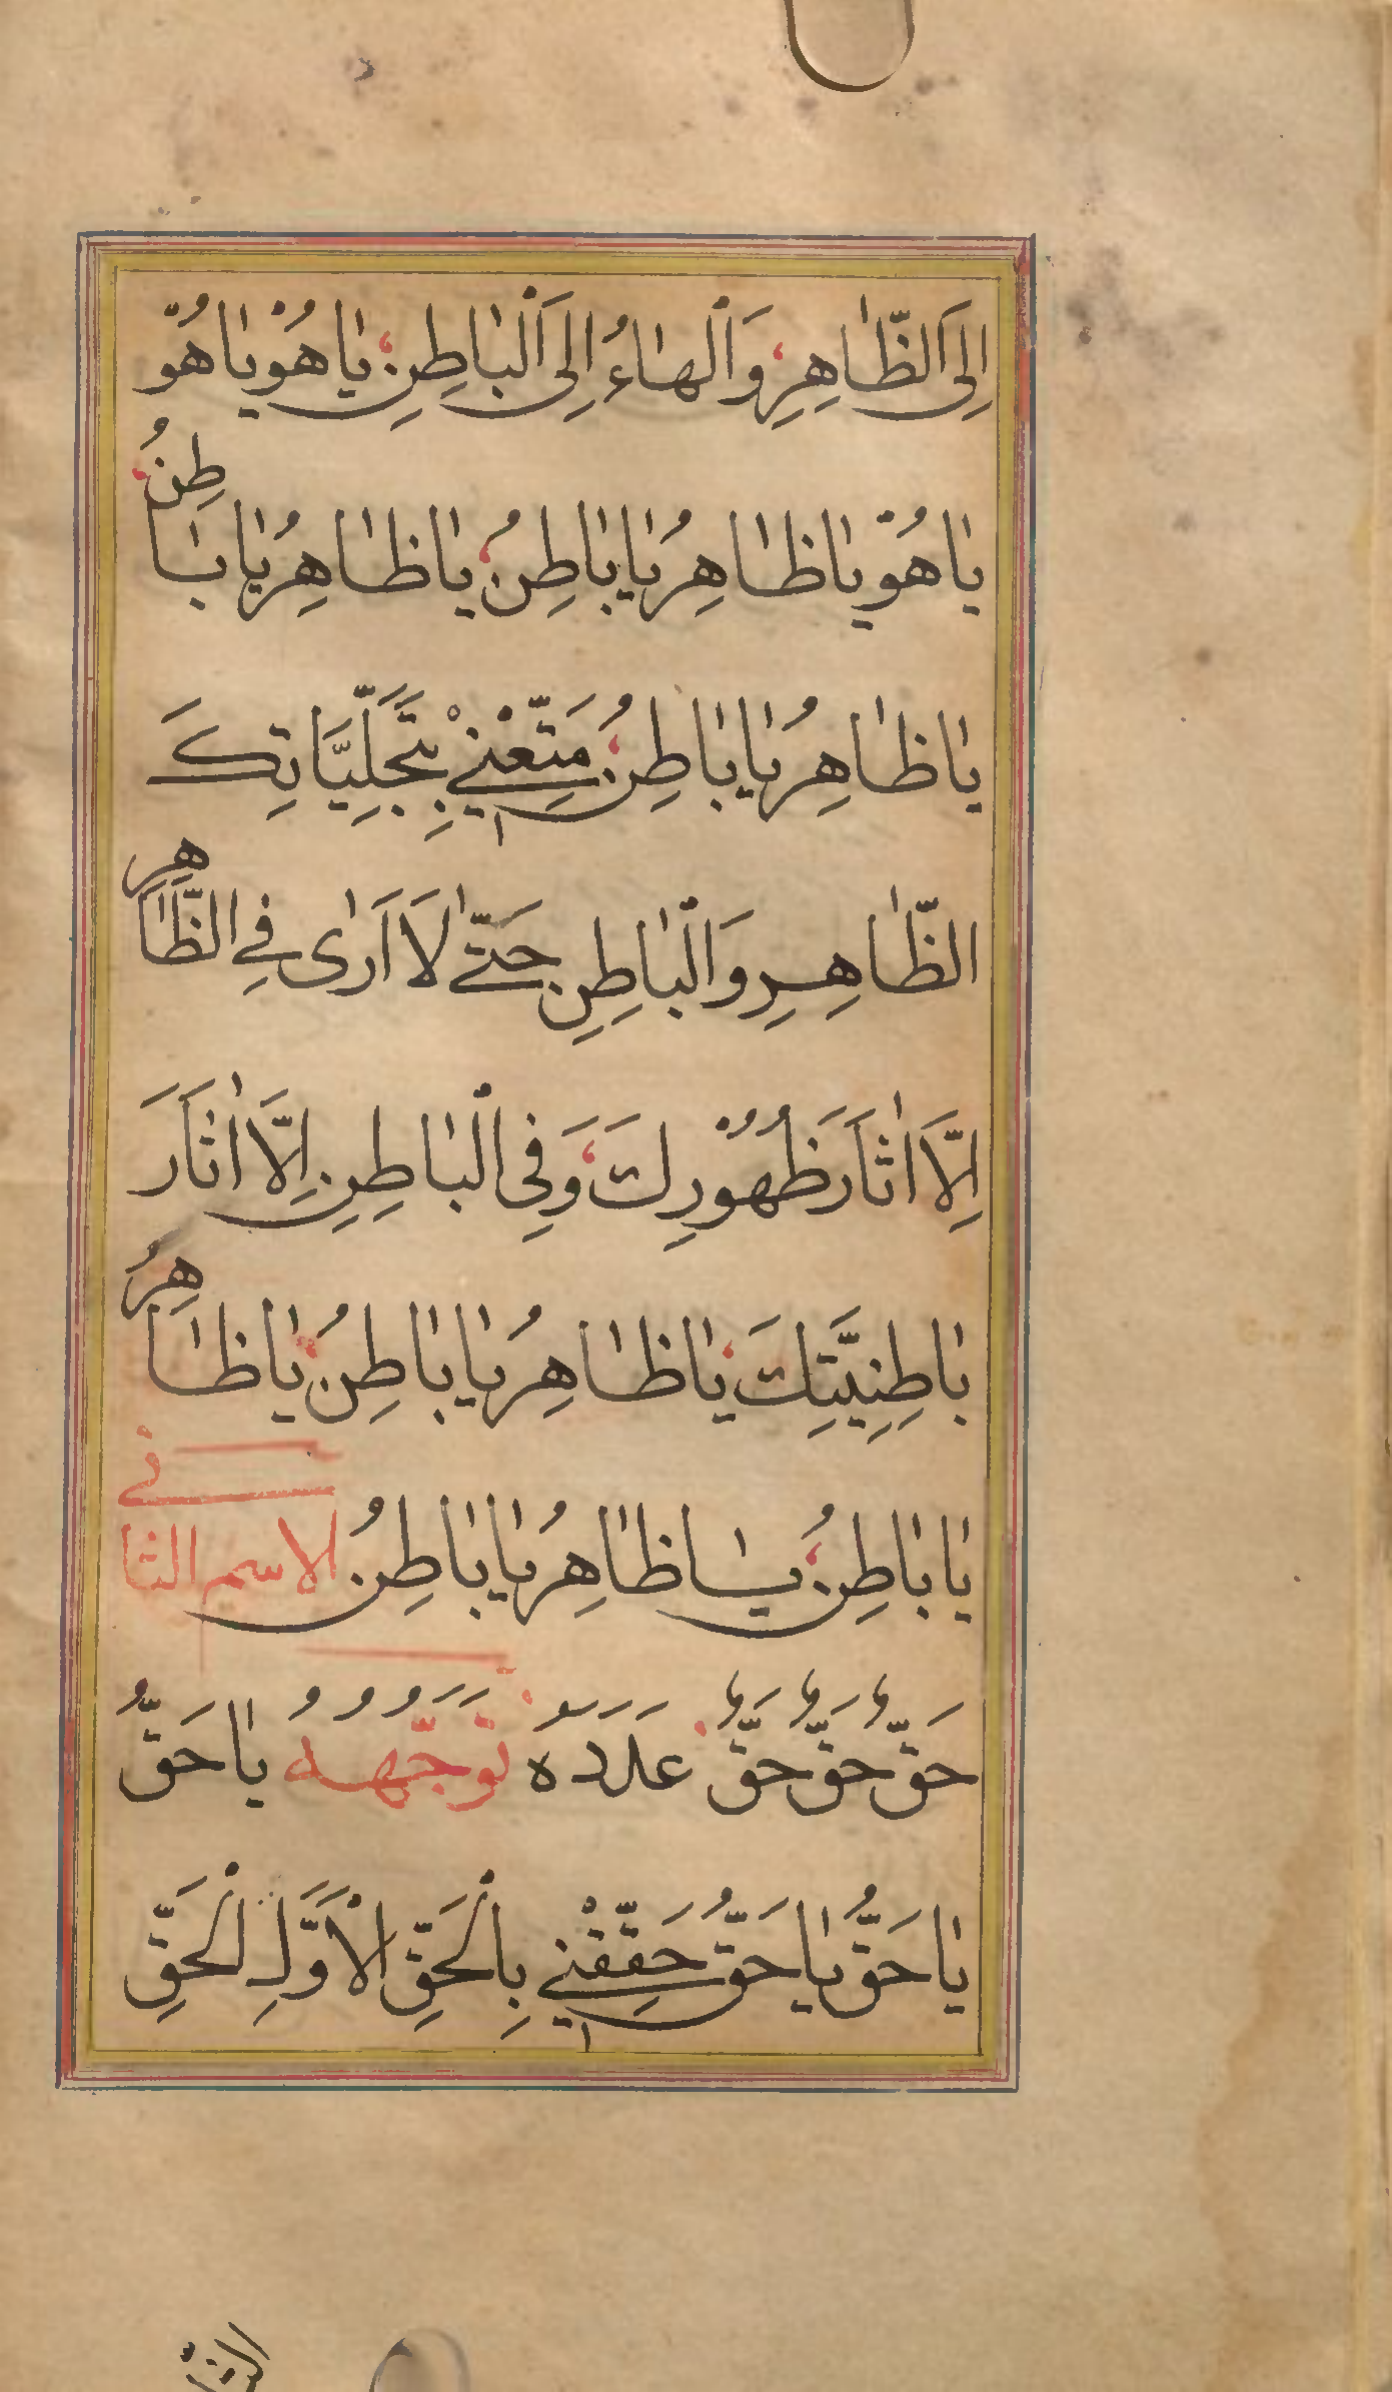 اِلَى اَلظّٰاهِرِ، وَاَلْهٰاءُ اِلَى اَلْبٰاطِنِ، يٰا هُوْ يٰا هُوْ
يٰا هُوْ يٰا ظٰاهِرُ يٰا بٰاطِنُ، يٰا ظٰاهِرُ يٰا بٰاطِنُ،
يٰا ظٰاهِرُ يٰا بٰاطِنُ، مَتِّعْنِيْ بِتَجَلِّيَّاتِكَ
الظّٰاهِرِ وَالْبٰاطِنِ حَتّٰى لَا اَرٰى فِي الظّٰاهِرِ
اِلَّا اٰثَارَ ظُهُوْرِكَ، وَفِى الْبٰاطِنِ اِلَّا اٰثَارَ
بٰاطِنِيَّتِكَ، يٰا ظٰاهِرُ يٰا بٰاطِنُ، يٰا ظٰاهِرُ
يٰا بٰاطِنُ، يٰا ظٰاهِرُ يٰا بٰاطِنُ الاسم الثانى
حَقّ حَقّ حَقّ عدده تَوَجُّهُهُ يٰا حَقُّ
يٰا حَقُّ يٰا حَقُّ حَقِّقْنِي بِالْحَقِّ الْاَوَّلِ الْحَقِّ